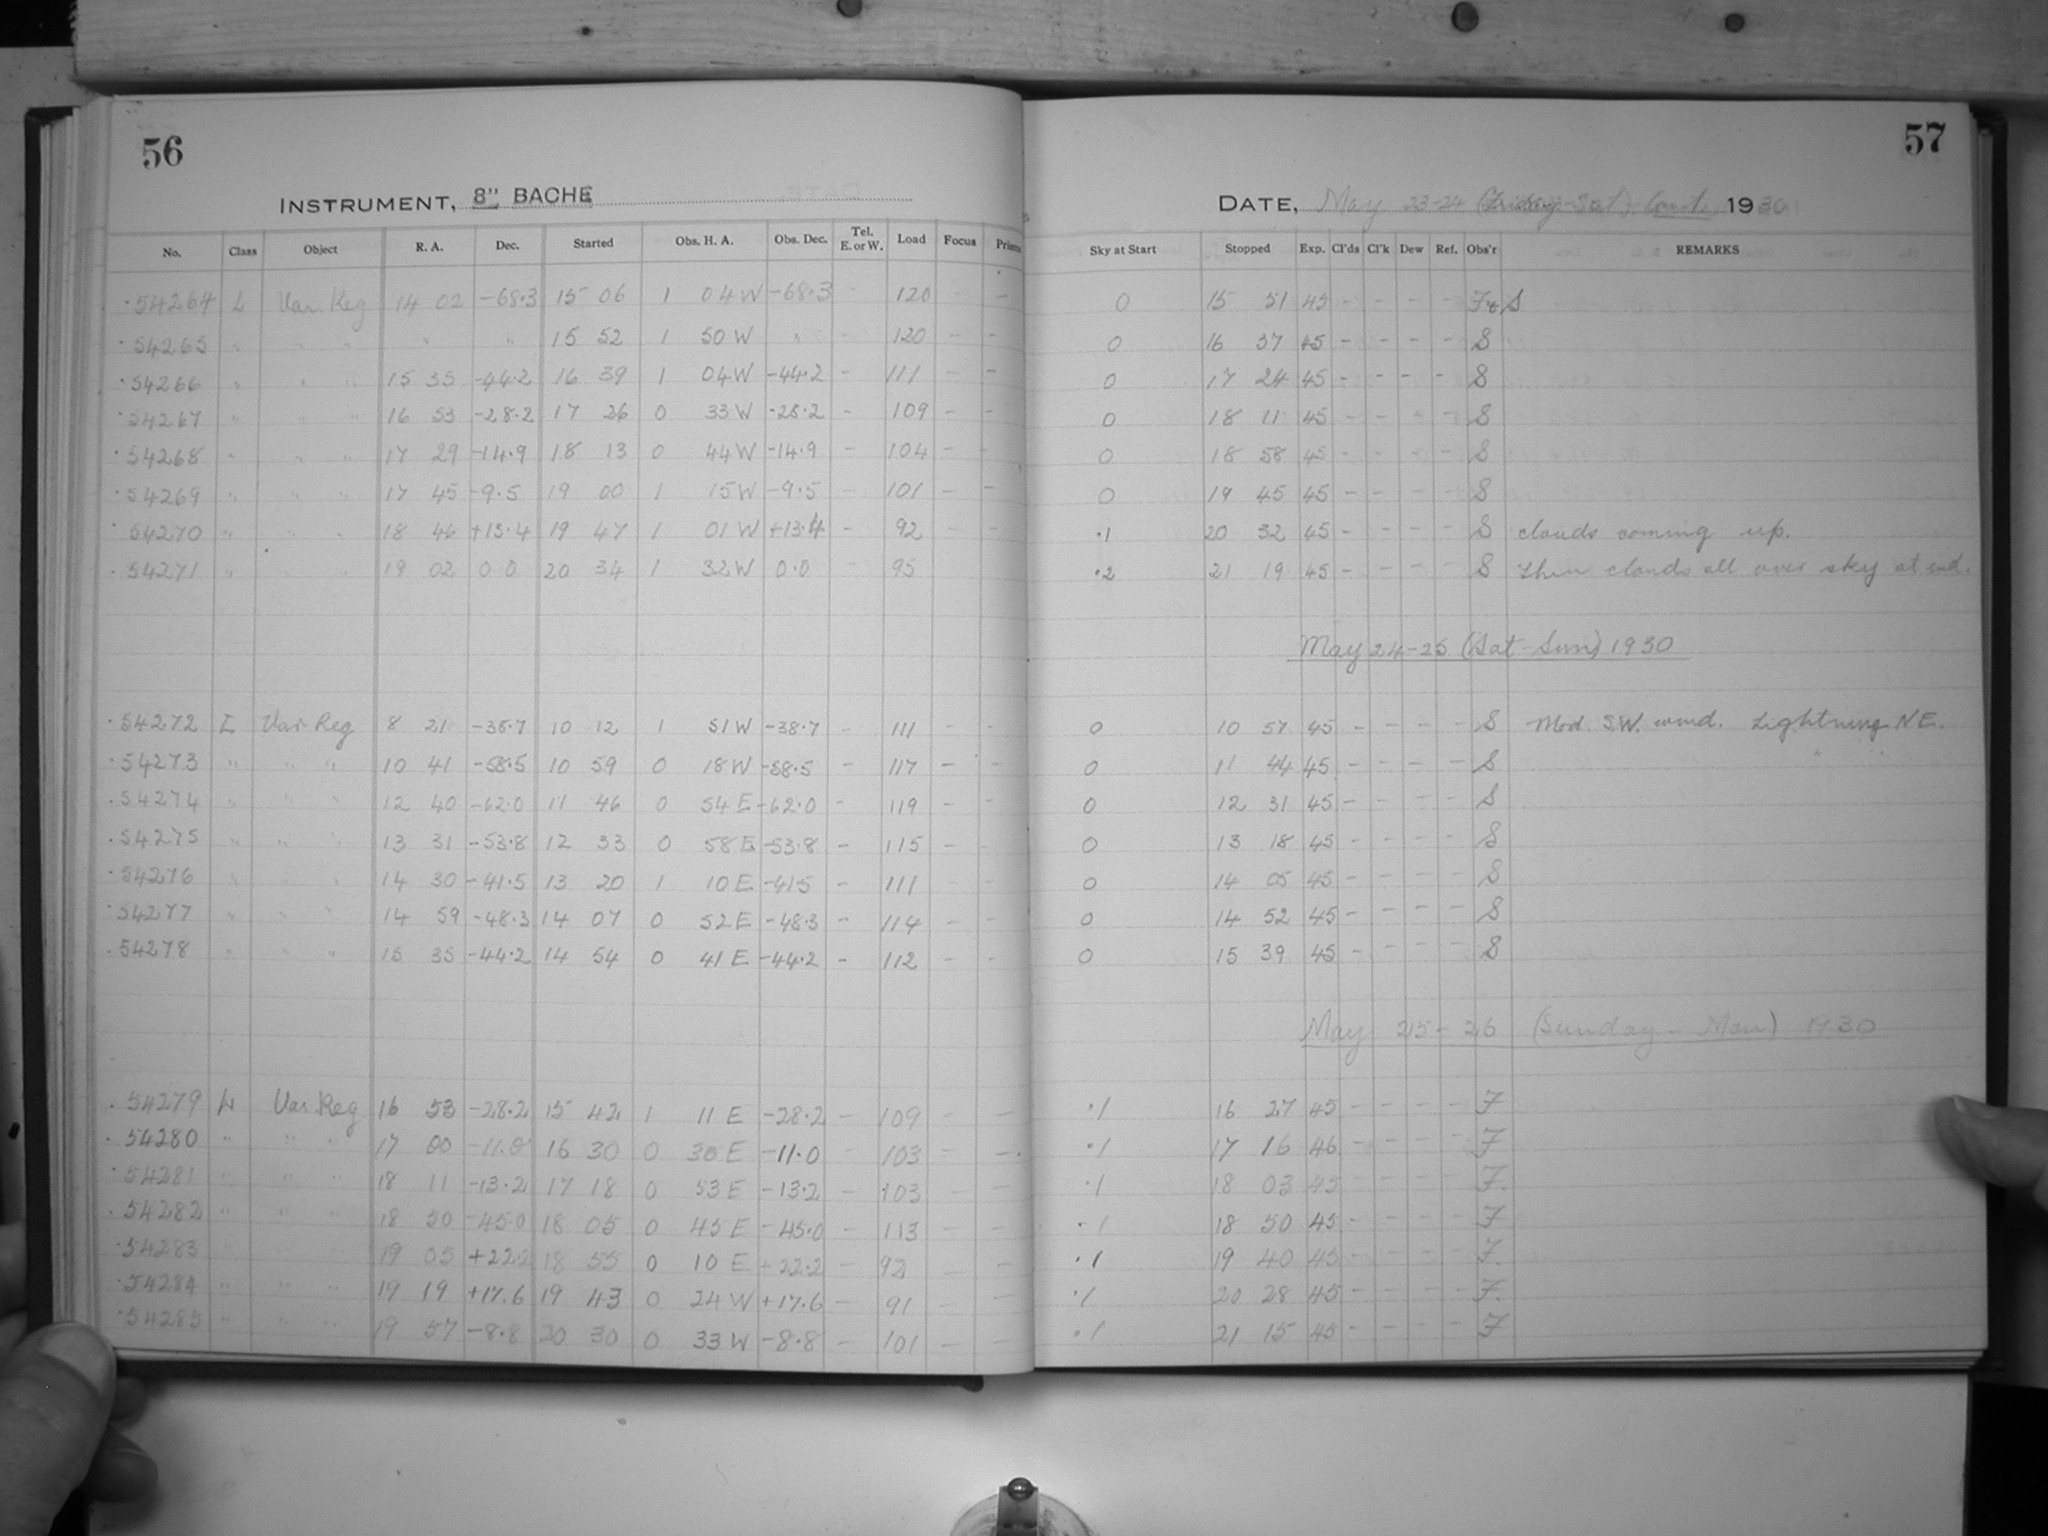 56
INSTRUMENT, 8" BACHE
No. Class Object R. A. Dec. Started Obs. H. A. Obs. Dec. Tel. E. or W. Load Focus Prisms
54264 L Var Reg 14 02 -68.3 15 06 1 04 W -68.3 - 120 - -
54265 " " " " " 15 52 1 50 W " - 120 - -
54266 " " " 15 35 -44.2 16 39 1 04 W -44.2 - 111 - -
54267 " " " 16 53 -28.2 17 26 0 33 W -28.2 - 109 - -
54268 " " " 17 29 -14.9 18 13 0 44 W -14.9 - 104 - -
54269 " " " 17 45 -9.5 19 00 1 15 W -9.5 - 101 - -
54270 " " " 18 46 +13.4 19 47 1 01 W +13.4 - 92 - -
54271 " " " 19 02 0.0 20 34 1 32 W 0.0 - 95
54272 L Var Reg 8 21 -38.7 10 12 1 51 W -38.7 - 111 - -
54273 " " " 10 41 -58.5 10 59 0 18 W -58.5 - 117 - -
54274 " " " 12 40 -62.0 11 46 0 54 E -62.0 - 119 - -
54275 " " " 13 31 -53.8 12 33 0 58 E -53.8 - 115 - -
54276 " " " 14 30 -41.5 13 20 1 10 E -41.5 - 111 - -
54277 " " " 14 59 -48.3 14 07 0 52 E -48.3 - 114 - -
54278 " " " 15 35 -44.2 14 54 0 41 E -44.2 - 112 - -
54279 L Var Reg 16 53 -28.2 15 42 1 11 E -28.2 - 109 - -
54280 " " " 17 00 -11.0 16 30 0 30 E -11.0 - 103 - -
54281 " " " 18 11 -13.2 17 18 0 53 E -13.2 - 103 - -
54282 " " " 18 50 -45.0 18 05 0 45 E -45.0 - 113 - -
54283 " " " 19 05 +22.2 18 55 0 10 E +22.2 - 92 - -
54284 " " " 19 19 +17.6 19 43 0 24 W +17.6 - 91 - -
54285 " " " 19 57 -8.8 20 30 0 33 W -8.8 - 101 - -
57
DATE, May 23-24 (Friday-Sat) Contd. 1930
Sky at Start Stopped Exp. Cl'ds Cl'k Dew Ref. Obs'r REMARKS
0 15 51 45 - - - - F & S
0 16 37 45 - - - - S
0 17 24 45 - - - - S
0 18 11 45 - - - - S
0 18 58 45 - - - - S
0 19 45 45 - - - - S
.1 20 32 45 - - - - S clouds coming up.
.2 21 19 45 - - - - S Thin clouds all over sky at end.
May 24-25 (Sat-Sun) 1930
0 10 57 45 - - - - S Mod. S.W. wind. Lightning NE.
0 11 44 45 - - - - S " "
0 12 31 45 - - - - S
0 13 18 45 - - - - S
0 14 05 45 - - - - S
0 14 52 45 - - - - S
0 15 39 45 - - - - S
May 25-26 (Sunday-Mon) 1930
.1 16 27 45 - - - - F
.1 17 16 46 - - - - F
.1 18 03 45 - - - - F.
.1 18 50 45 - - - - F
.1 19 40 45 - - - - F.
.1 20 28 45 - - - - F.
.1 21 15 45 - - - - F